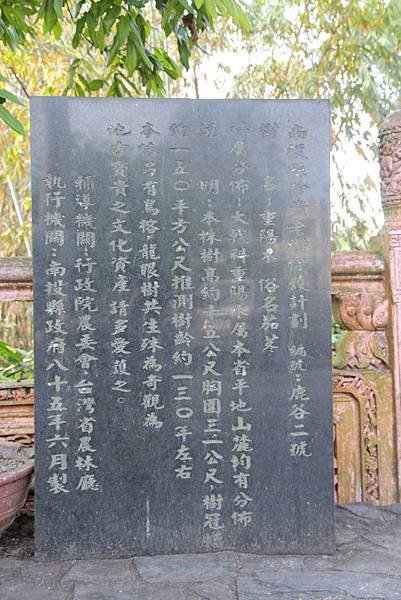 南投縣珍貴老樹保護計劃 編號:鹿谷二號
樹 名:重陽木 俗名茄苳
科屬分佈:大戟科重陽木屬本省平地山麓均有分佈
說 明:本株樹高約十五公尺胸圍三.一公尺,樹冠
約一五0平方公尺推測樹齡約一三0年左右
本樹另有鳥榕,龍眼樹共生殊為奇觀為
地方寶貴之文化資產請多愛護之。
輔導機關:行政院農委會.台灣省農林廳
執行機關:南投縣政府八十五年六月製